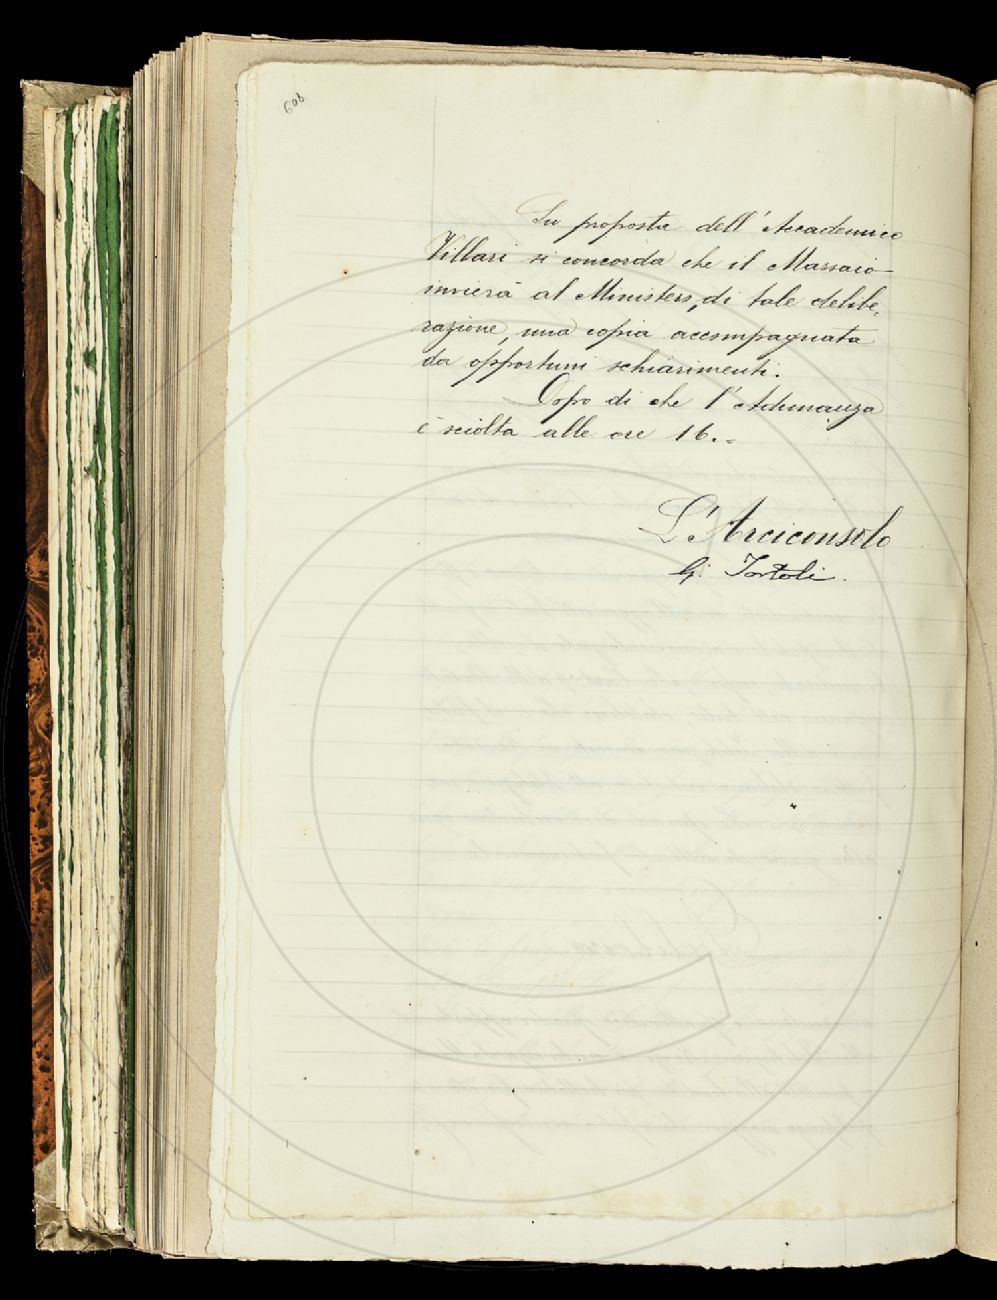 608
Su proposta dell' Accademico
Villari si concorda che il Massaio
invierà al Ministero, di tale delibe-
razione, una copia accompagnata
da opportuni schiarimenti.
Dopo di che l' Adunanza
è sciolta alle ore 16.=
L' Arciconsolo
G. Tortoli.